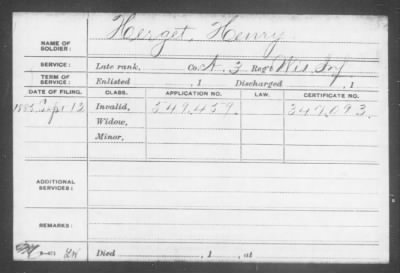 Herget, Henry
NAME OF SOLDIER:
SERVICE: Late rank, Co. A, 3 Reg't Wis Inf
TERM OF SERVICE: Enlisted , 1 Discharged , 1
DATE OF FILING. CLASS. APPLICATION NO. LAW. CERTIFICATE NO.
1885 Sept 12 Invalid, 549.459 349.093
Widow,
Minor,
ADDITIONAL SERVICES:
REMARKS:
Died , 1 , at